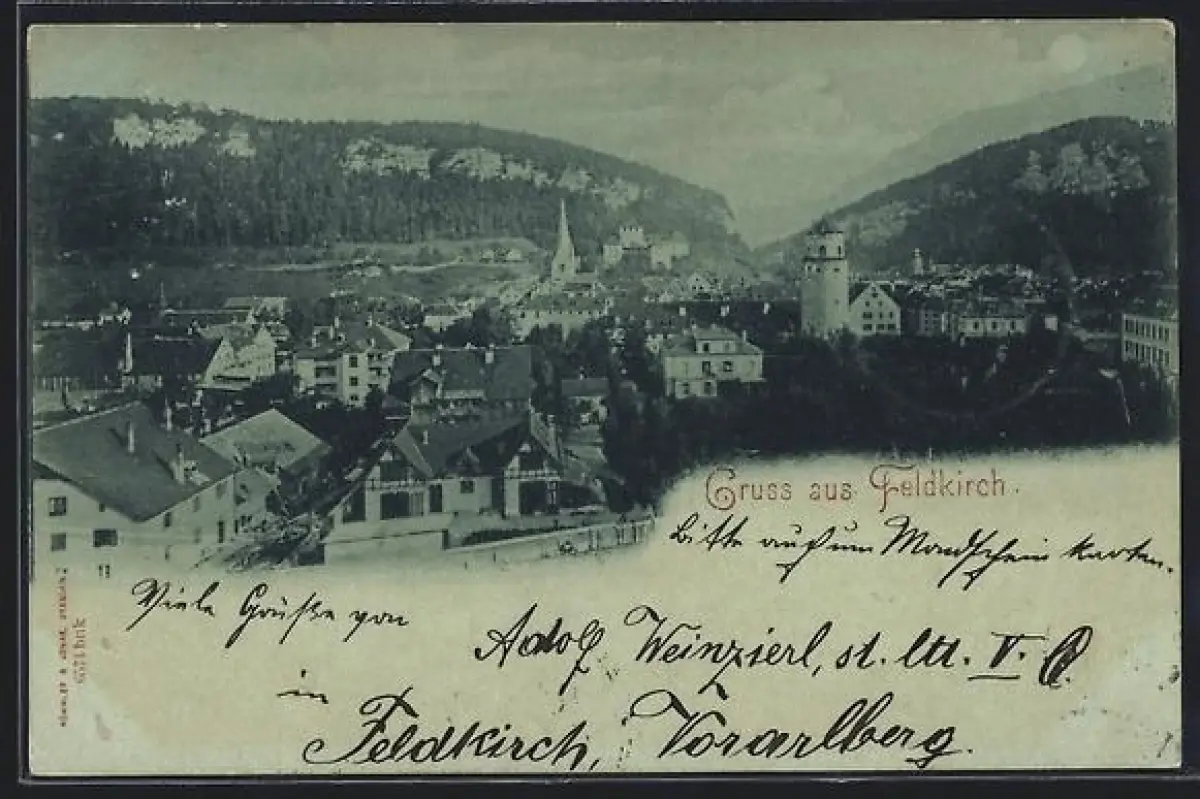 Gruss aus Feldkirch.
Bitte auch um Mondschein Karten.
Viele Grüße von
Adolf Weinzierl, st. litt. V.
in
Feldkirch, Vorarlberg.